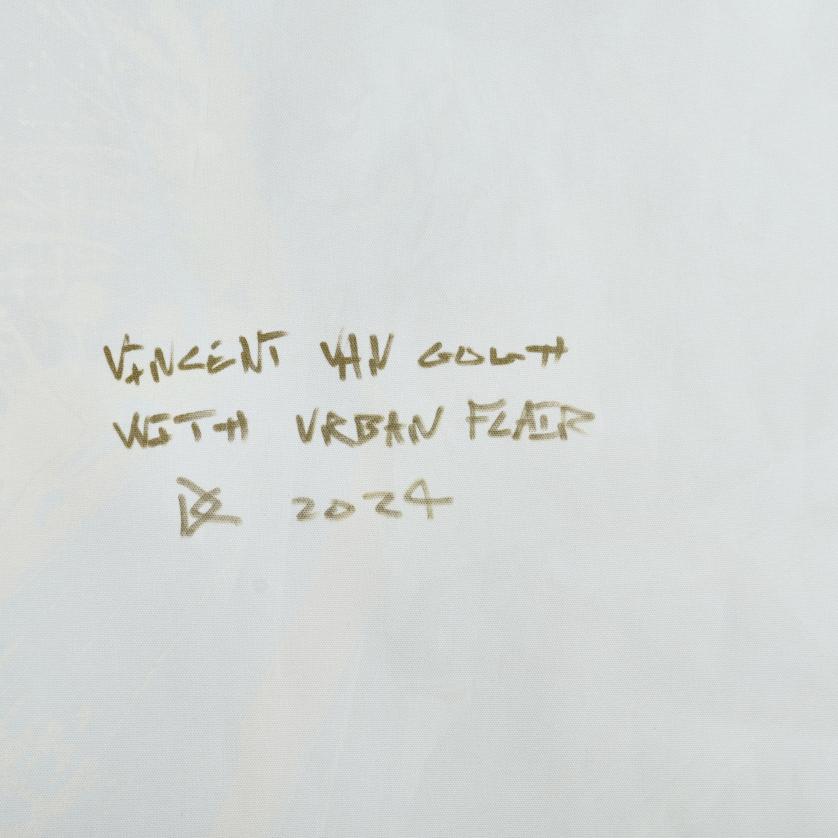 VINCENT VAN GOGH
WITH URBAN FLAIR
2024